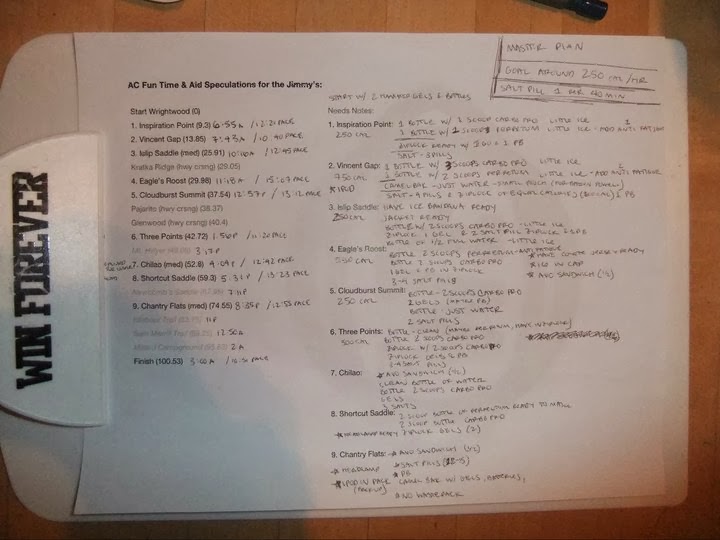 WIN FOREVER
MASTER PLAN
GOAL AROUND 250 CAL/HR
SALT PILL 1 PER 40 MIN
AC Fun Time & Aid Speculations for the Jimmy's:
START W/ 2 HAMMER GELS & BOTTLES
Start Wrightwood (0)
1. Inspiration Point (9.3) 6:55A / 12:21 PACE
2. Vincent Gap (13.85) 7:43A / 10:40 PACE
3. Islip Saddle (med) (25.91) 10:16A / 12:45 PACE
Kratka Ridge (hwy crsng) (29.05)
4. Eagle's Roost (29.98) 11:18A / 15:07 PACE
5. Cloudburst Summit (37.54) 12:57P / 13:12 PACE
Pajarito (hwy crsng) (38.37)
Glenwood (hwy crsng) (40.4)
6. Three Points (42.72) 1:56P / 11:20 PACE
Mt. Hillyer 3:17P
7. Chilao (med) (52.8) 4:09P / 12:42 PACE
8. Shortcut Saddle (59.3) 5:31P / 13:23 PACE
7:11P
9. Chantry Flats (med) (74.55) 8:35P / 12:55 PACE
11P
12:50A
2A
Finish (100.53) 3:40A / PACE
Needs Notes:
1. Inspiration Point: 1 BOTTLE W/ 2 SCOOP CARBO PRO LITTLE ICE
250 CAL 1 BOTTLE W/ SCOOP PERPETUM LITTLE ICE - ADD ANTI FATIGUE
ZIPLOCK READY W/ 2 GU & 1 PB
SALT - 3 PILLS
2. Vincent Gap: 1 BOTTLE W/ 3 SCOOPS CARBO PRO LITTLE ICE
750 CAL 1 BOTTLE W/ 2 SCOOPS PERPETUM LITTLE ICE - ADD ANTI FATIGUE
* IPOD CAMELBAK - JUST WATER
SALT - 4 PILLS & ZIPLOCK
3. Islip Saddle: HAVE ICE BANDANA READY
250 CAL JACKET READY
BOTTLE W/ 2 SCOOPS CARBO PRO - LITTLE ICE
ZIPLOCK 1 GEL & 2 SALT PILL
BOTTLE OF 1/2 FULL WATER - LITTLE ICE
4. Eagle's Roost: BOTTLE 2 SCOOPS PERPETUM - ANTI FATIGUE
BOTTLE 2 SCOOPS CARBO PRO * ICE IN CAP
1 GEL & PB IN ZIPLOCK * AVO SANDWICH (1/2)
3-4 SALT PILLS
5. Cloudburst Summit: BOTTLE - 2 SCOOPS CARBO PRO
250 CAL 2 GELS (MAYBE PB)
BOTTLE - JUST WATER
2 SALT PILLS
6. Three Points: BOTTLE - CLEAN (MAYBE PERPETUM, HAVE IN ZIPLOCK)
500 CAL BOTTLE 2 SCOOPS CARBO PRO
ZIPLOCK W/ 2 SCOOPS CARBO PRO
ZIPLOCK GELS & PB
3-4 SALT PILLS
7. Chilao: * AVO SANDWICH (1/2)
CLEAN BOTTLE OF WATER
BOTTLE 2 SCOOPS CARBO PRO
GELS
3 SALTS
8. Shortcut Saddle: 2 SCOOP BOTTLE OF PERPETUM READY TO MAKE
2 SCOOP BOTTLE CARBO PRO
* HEADLAMP READY ZIPLOCK GELS (2)
9. Chantry Flats: * AVO SANDWICH (1/2)
* HEADLAMP * SALT PILLS
* PB
* IPOD IN PACK CAMELBAK W/ GELS, BATTERIES,
(BACKUP)
* NO WAISTPACK